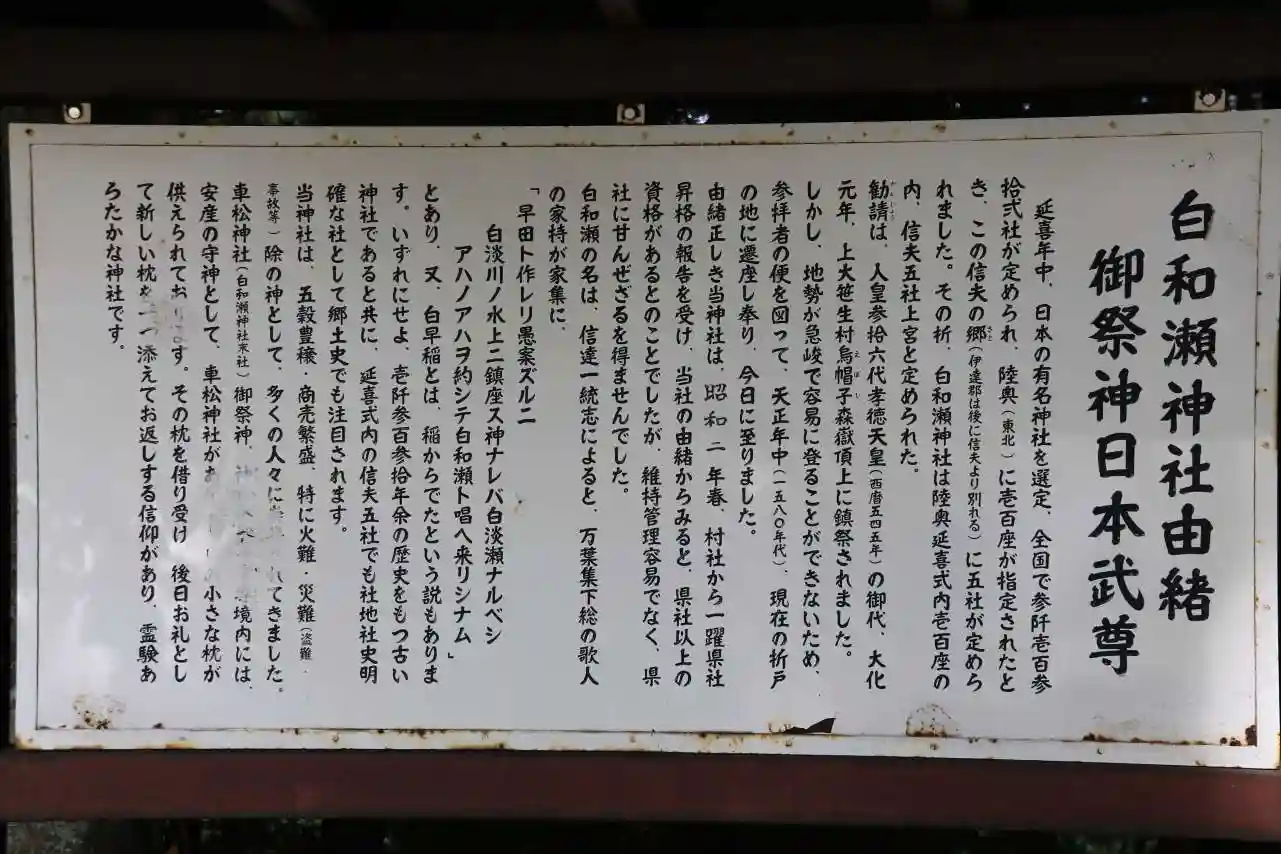 白和瀬神社由緒
御祭神日本武尊
延喜年中、日本の有名神社を選定、全国で参阡壱百参
拾弐社が定められ、陸奥(東北)に壱百座が指定されたと
き、この信夫の郷(伊達郡は後に信夫より別れる)に五社が定めら
れました。その折、白和瀬神社は陸奥延喜式内壱百座の
内、信夫五社上宮と定められた。
勧請は、人皇参拾六代孝徳天皇(西暦五四五年)の御代、大化
元年、上大笹生村烏帽子森嶽頂上に鎮祭されました。
しかし、地勢が急峻で容易に登ることができないため、
参拝者の便を図って、天正年中(一五八〇年代)、現在の折戸
の地に遷座し奉り、今日に至りました。
由緒正しき当神社は、昭和二年春、村社から一躍県社
昇格の報告を受け、当社の由緒からみると、県社以上の
資格があるとのことでしたが、維持管理容易でなく、県
社に甘んぜざるを得ませんでした。
白和瀬の名は、信達一統志によると、万葉集下総の歌人
の家持が家集に、
「早田ト作レリ愚案ズルニ
白淡川ノ水上ニ鎮座ス神ナレバ白淡瀬ナルベシ
アハノアハヲ約シテ白和瀬ト唱へ来リシナム」
とあり、又、白早稲とは、稲からでたという説もありま
す。いずれにせよ、壱阡参百参拾年余の歴史をもつ古い
神社であると共に、延喜式内の信夫五社でも社地社史明
確な社として郷土史でも注目されます。
当神社は、五穀豊穣・商売繁盛、特に火難・災難(盗難・
事故等)除の神として、多くの人々に れてきました。
車松神社(白和瀬神社末社)御祭神、 境内には、
安産の守神として、車松神社があ 小さな枕が
供えられております。その枕を借り受け 後日お礼とし
て新しい枕を一つ添えてお返しする信仰があり、霊験あ
らたかな神社です。